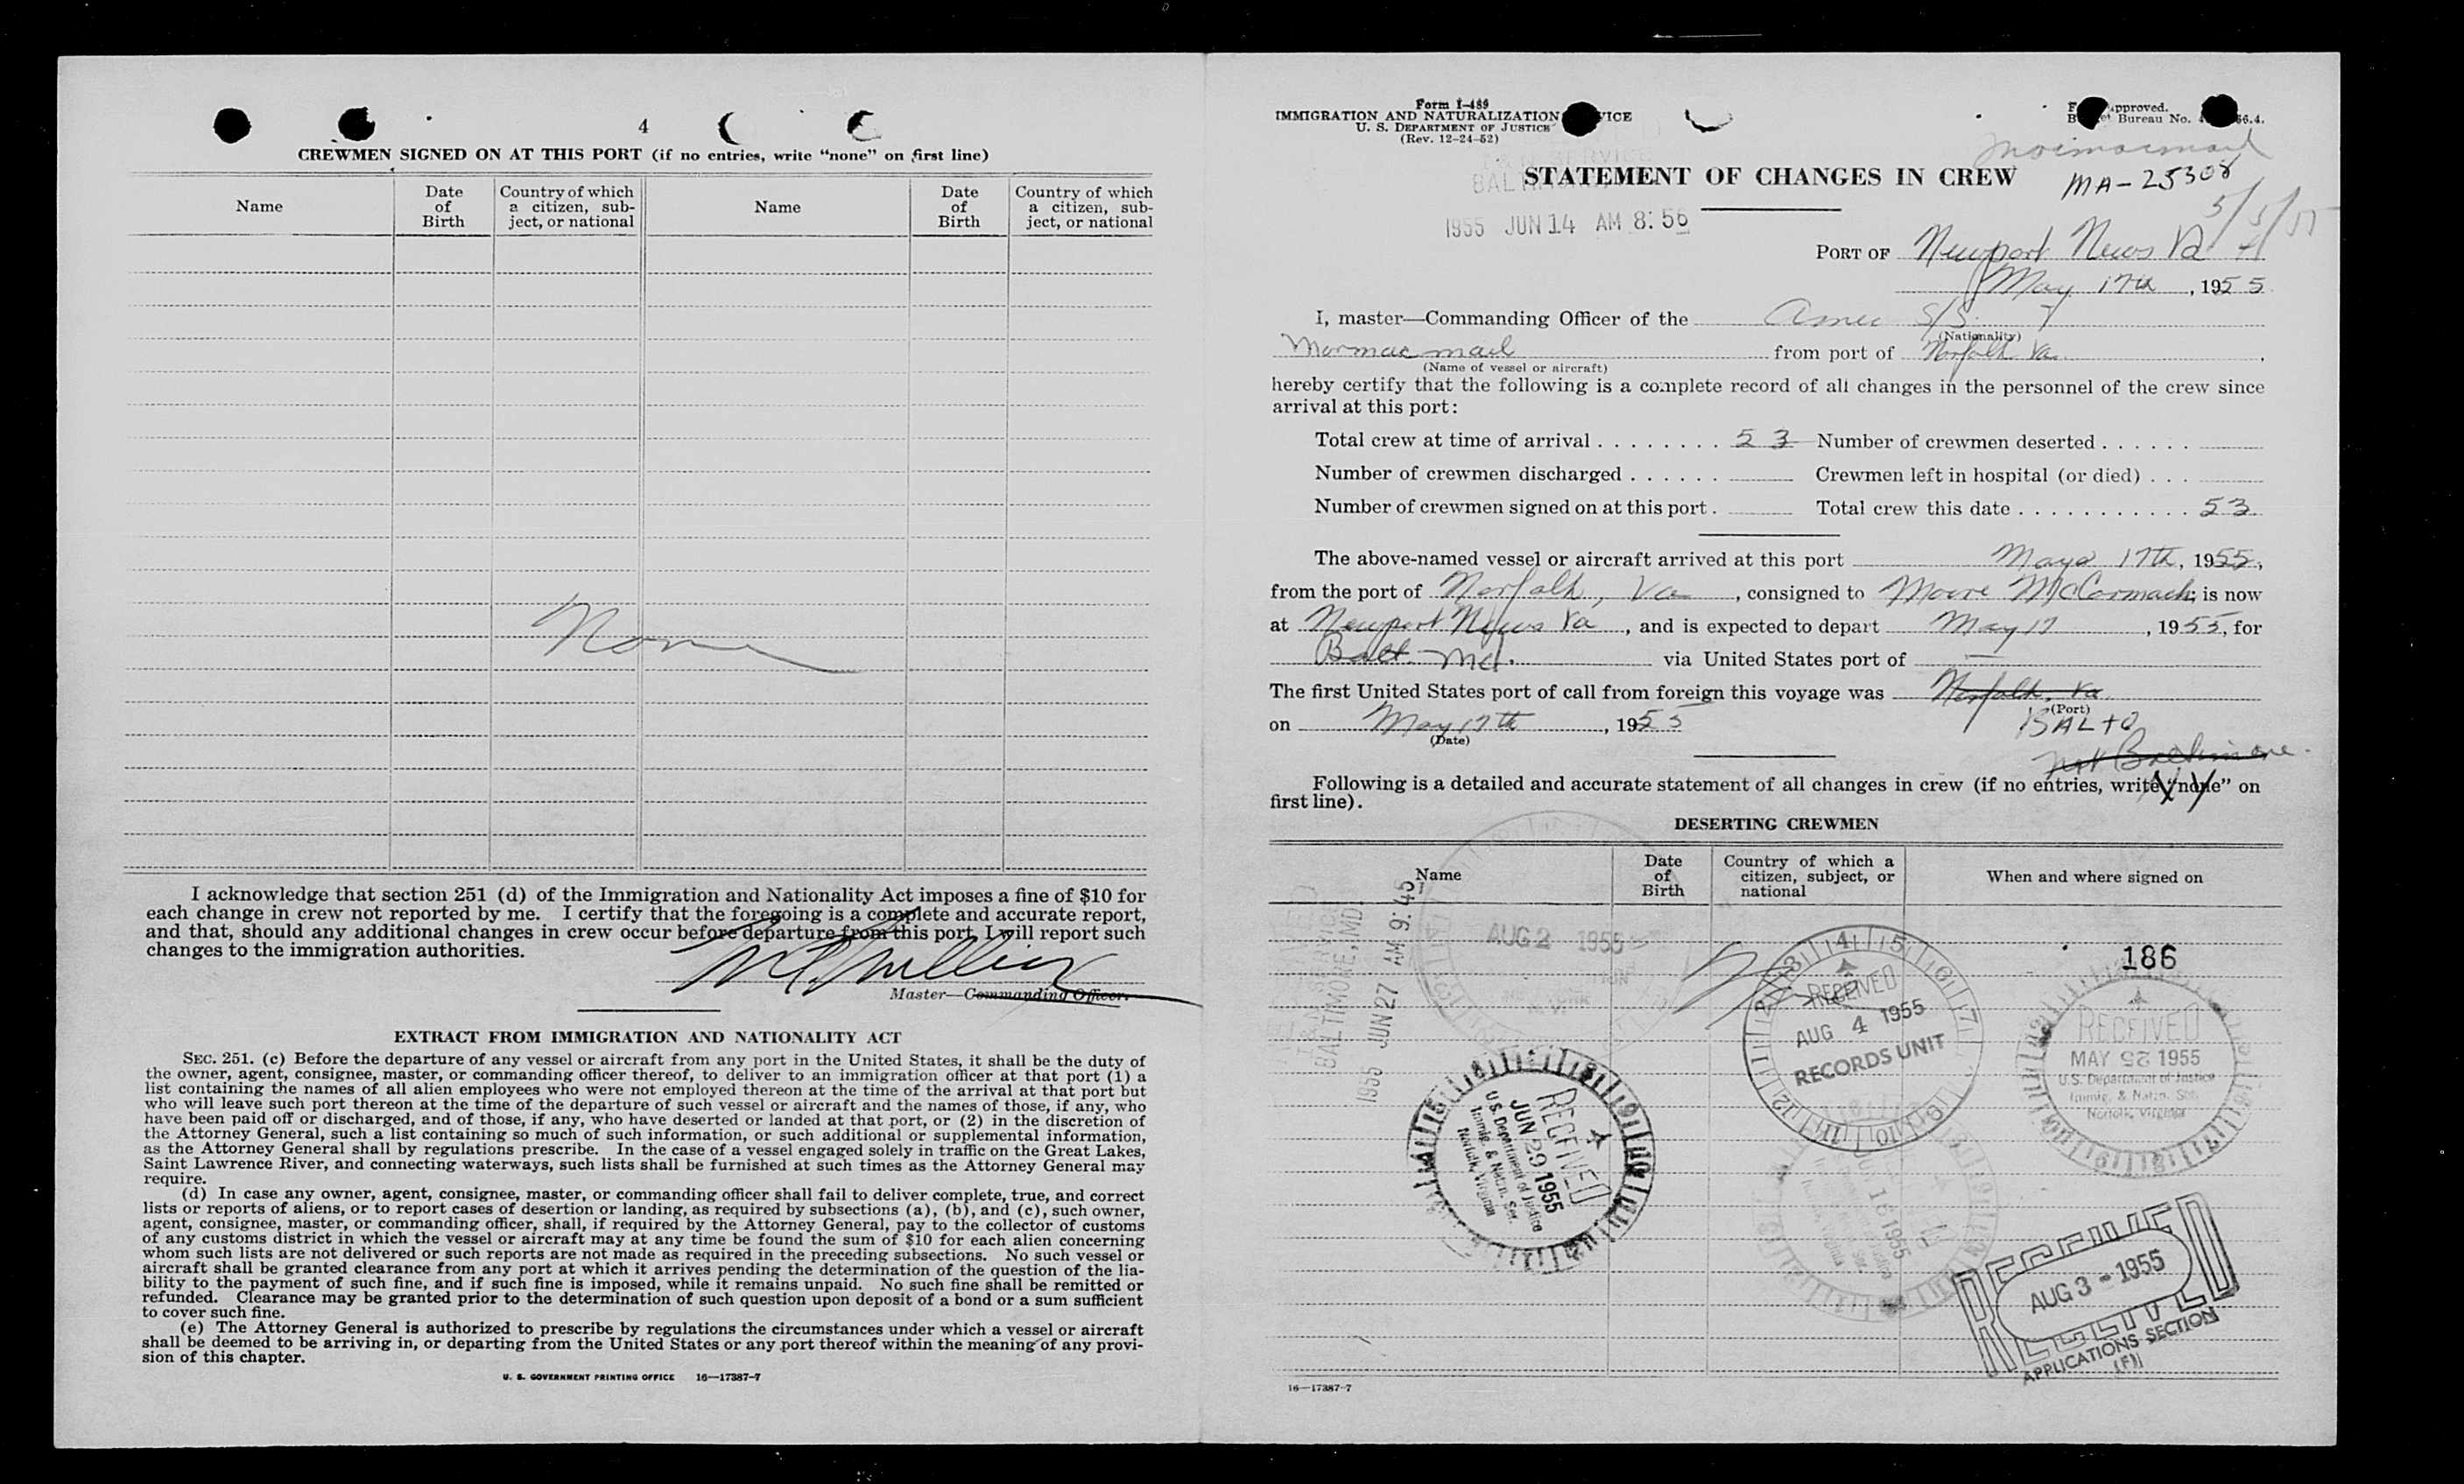 4
CREWMEN SIGNED ON AT THIS PORT (if no entries, write “none” on first line)
Name
Date of Birth
Country of which a citizen, sub-ject, or national
Name
Date of Birth
Country of which a citizen, sub-ject, or national
None
I acknowledge that section 251 (d) of the Immigration and Nationality Act imposes a fine of $10 for
each change in crew not reported by me. I certify that the foregoing is a complete and accurate report,
and that, should any additional changes in crew occur before departure from this port, I will report such
changes to the immigration authorities.
Master—Commanding Officer.
EXTRACT FROM IMMIGRATION AND NATIONALITY ACT
SEC. 251. (c) Before the departure of any vessel or aircraft from any port in the United States, it shall be the duty of
the owner, agent, consignee, master, or commanding officer thereof, to deliver to an immigration officer at that port (1) a
list containing the names of all alien employees who were not employed thereon at the time of the arrival at that port but
who will leave such port thereon at the time of the departure of such vessel or aircraft and the names of those, if any, who
have been paid off or discharged, and of those, if any, who have deserted or landed at that port, or (2) in the discretion of
the Attorney General, such a list containing so much of such information, or such additional or supplemental information,
as the Attorney General shall by regulations prescribe. In the case of a vessel engaged solely in traffic on the Great Lakes,
Saint Lawrence River, and connecting waterways, such lists shall be furnished at such times as the Attorney General may
require.
(d) In case any owner, agent, consignee, master, or commanding officer shall fail to deliver complete, true, and correct
lists or reports of aliens, or to report cases of desertion or landing, as required by subsections (a), (b), and (c), such owner,
agent, consignee, master, or commanding officer, shall, if required by the Attorney General, pay to the collector of customs
of any customs district in which the vessel or aircraft may at any time be found the sum of $10 for each alien concerning
whom such lists are not delivered or such reports are not made as required in the preceding subsections. No such vessel or
aircraft shall be granted clearance from any port at which it arrives pending the determination of the question of the lia-
bility to the payment of such fine, and if such fine is imposed, while it remains unpaid. No such fine shall be remitted or
refunded. Clearance may be granted prior to the determination of such question upon deposit of a bond or a sum sufficient
to cover such fine.
(e) The Attorney General is authorized to prescribe by regulations the circumstances under which a vessel or aircraft
shall be deemed to be arriving in, or departing from the United States or any port thereof within the meaning of any provi-
sion of this chapter.
U. S. GOVERNMENT PRINTING OFFICE 16—17387-7
Form I-489
IMMIGRATION AND NATURALIZATION
U. S. DEPARTMENT OF JUSTICE
(Rev. 12-24-52)
Approved.
Bureau No.
Mormacmail
STATEMENT OF CHANGES IN CREW
MA-25308
5/5/55
1955 JUN 14 AM 8:56
PORT OF Newport News Va
May 17th, 1955
I, master—Commanding Officer of the Amer S/S
(Nationality)
Mormacmail from port of Norfolk Va.
(Name of vessel or aircraft)
hereby certify that the following is a complete record of all changes in the personnel of the crew since
arrival at this port:
Total crew at time of arrival . . . . . . . . 53 Number of crewmen deserted . . . . . .
Number of crewmen discharged . . . . . . Crewmen left in hospital (or died) . . .
Number of crewmen signed on at this port . Total crew this date . . . . . . . . . . . 53
The above-named vessel or aircraft arrived at this port May 17th, 1955,
from the port of Norfolk, Va, consigned to Moore McCormack; is now
at Newport News Va, and is expected to depart May 17, 1955, for
Balt. Md. via United States port of —
The first United States port of call from foreign this voyage was Norfolk, Va
(Port)
on May 17th, 1955
(Date)
BALTO
not Baltimore.
Following is a detailed and accurate statement of all changes in crew (if no entries, write “none” on
first line).
DESERTING CREWMEN
Name
Date of Birth
Country of which a citizen, subject, or national
When and where signed on
BALTIMORE, MD.
1955 JUN 27 AM 9:45
AUG 2 1955
RECEIVED
AUG 4 1955
RECORDS UNIT
186
RECEIVED
MAY 25 1955
U.S. Department of Justice
Immig. & Natzn. Ser.
Norfolk, Virginia
RECEIVED
JUN 29 1955
U.S. Department of Justice
Immig. & Natzn. Ser.
Norfolk, Virginia
16 1955
RECEIVED
AUG 3 - 1955
APPLICATIONS SECTION
(F)
16—17387-7